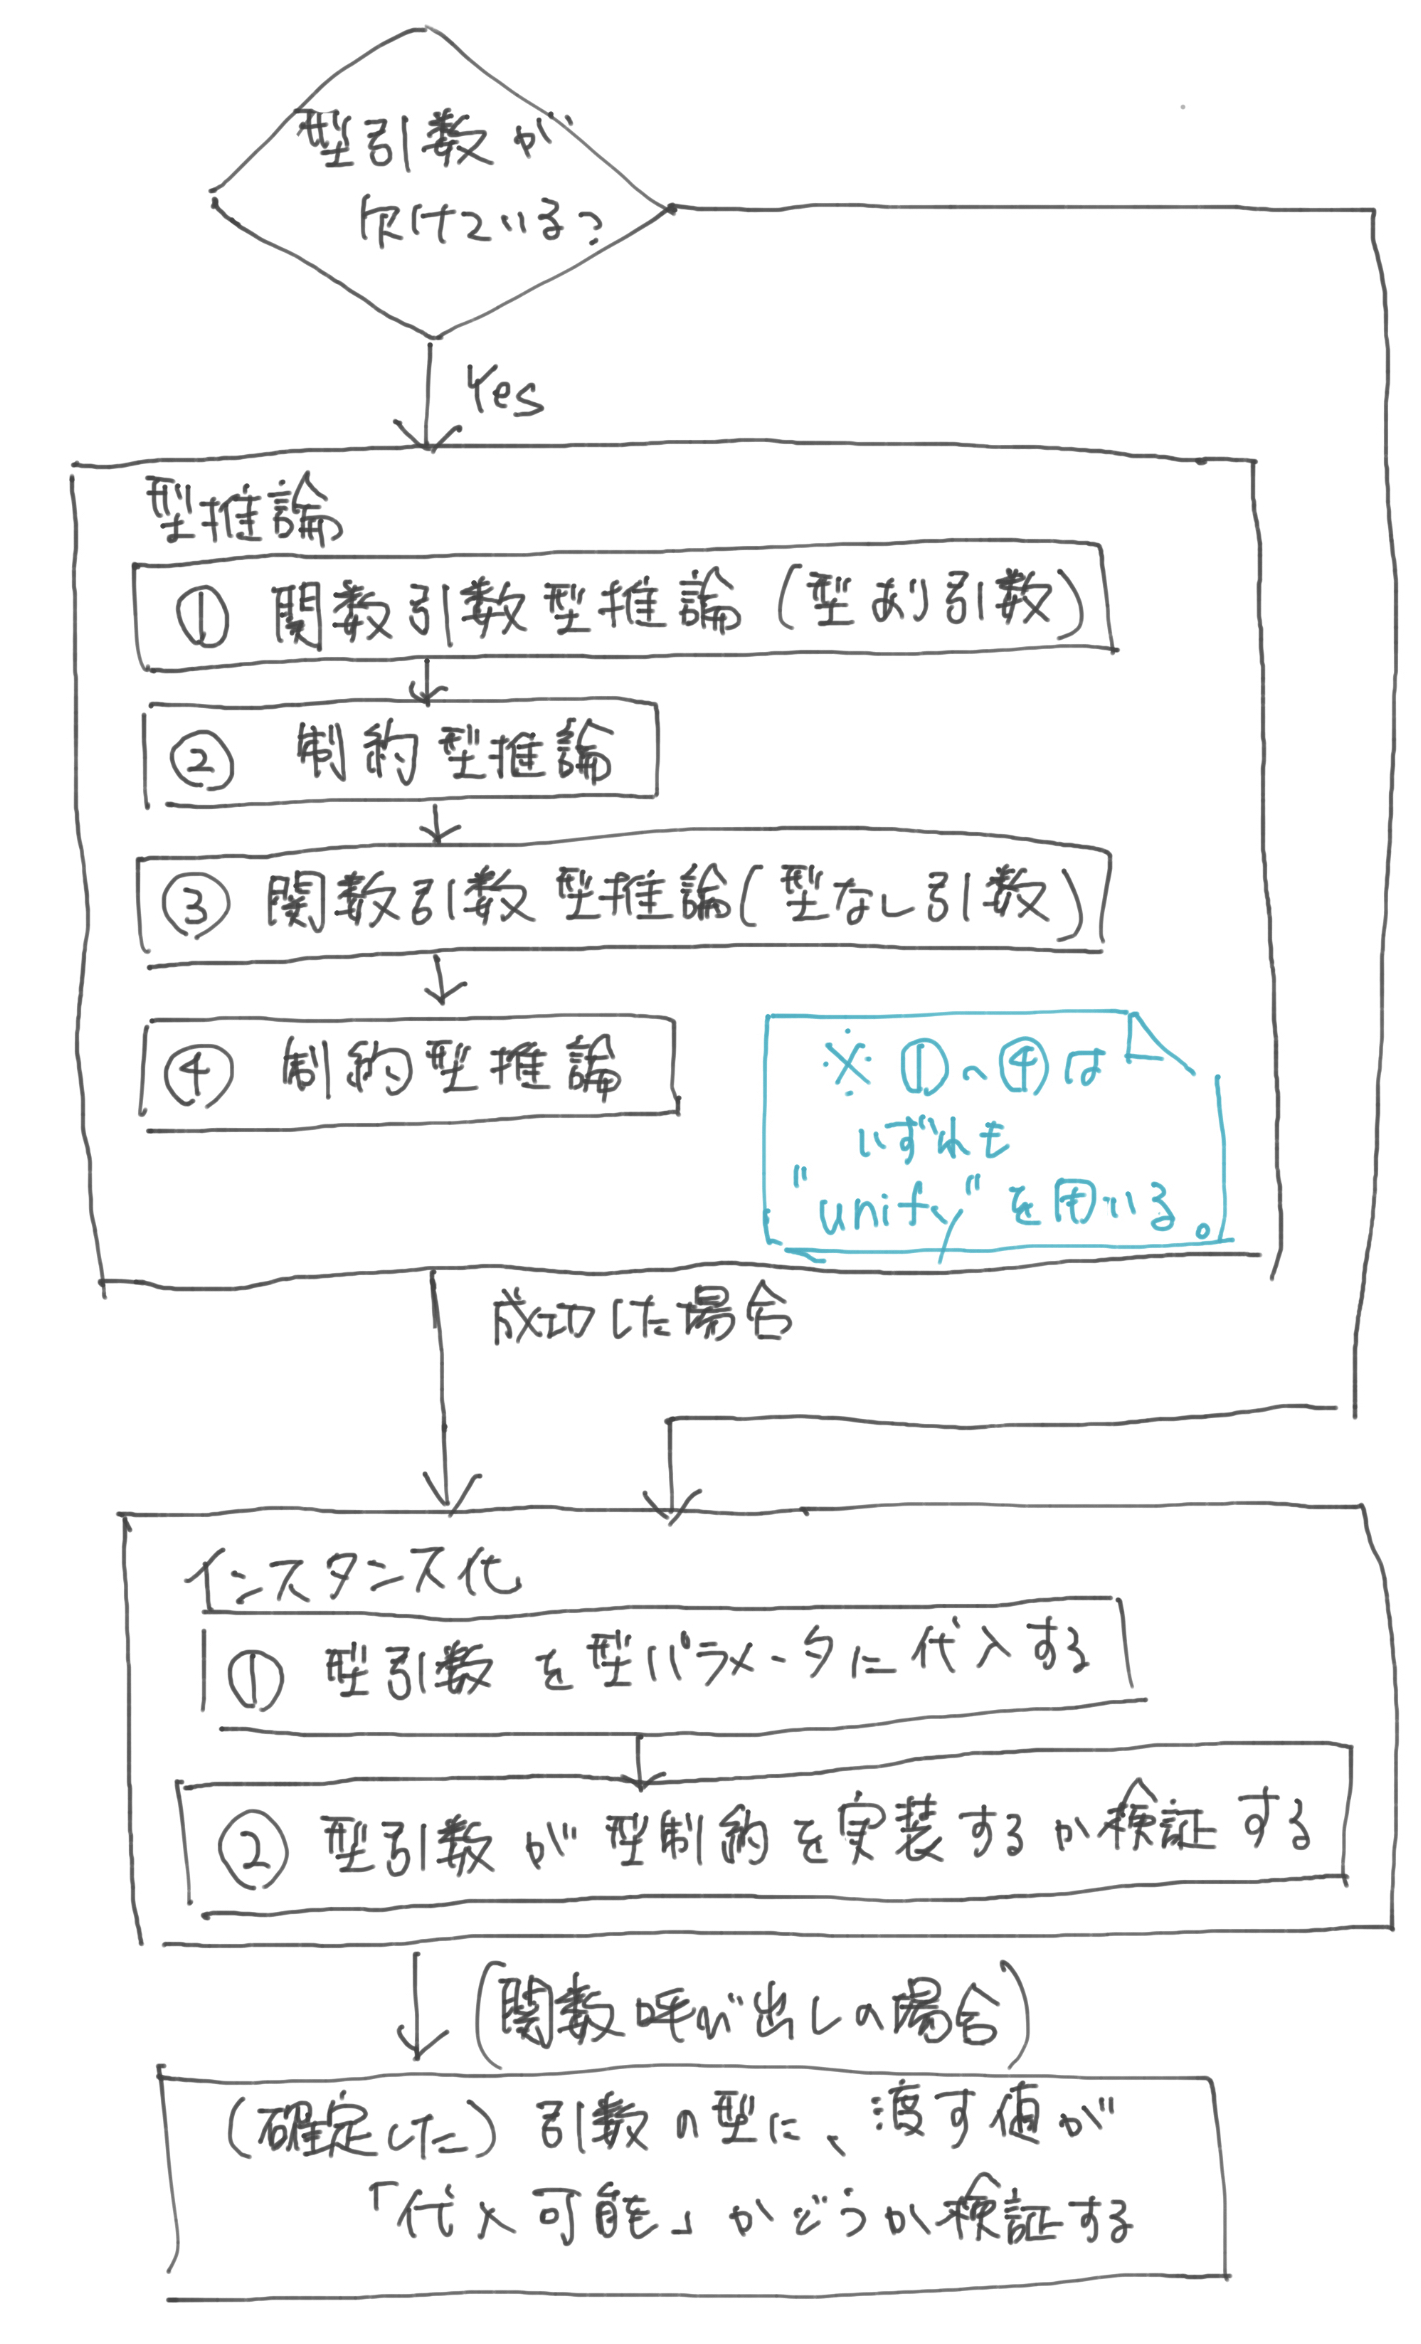 型引数が
欠けている?
Yes
型推論
① 関数引数型推論(型あり引数)
② 制約型推論
③ 関数引数型推論(型なし引数)
④ 制約型推論
※ ①〜④は
いずれも
"unify"を用いる。
成功した場合
インスタンス化
① 型引数を型パラメータに代入する
② 型引数が型制約を実装するか検証する
(関数呼び出しの場合)
(確定した)引数の型に、渡す値が
「代入可能」かどうか検証する